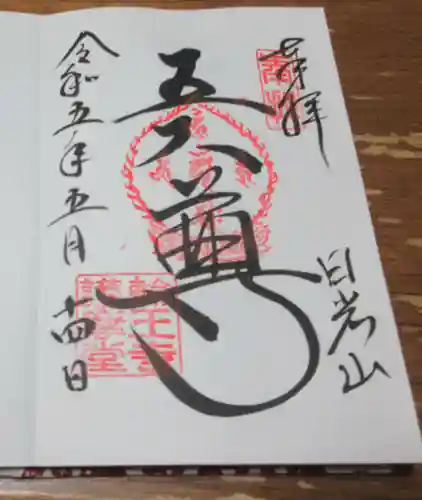 奉拝
日光山
五大尊
令和五年五月十四日
輪王寺
護摩堂